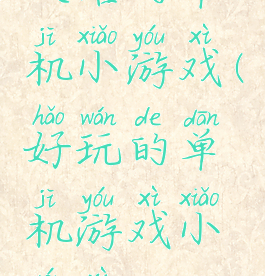 jī xiǎo yóu xì
机小游戏(
hǎo wán de dān
好玩的单
jī yóu xì xiǎo
机游戏小